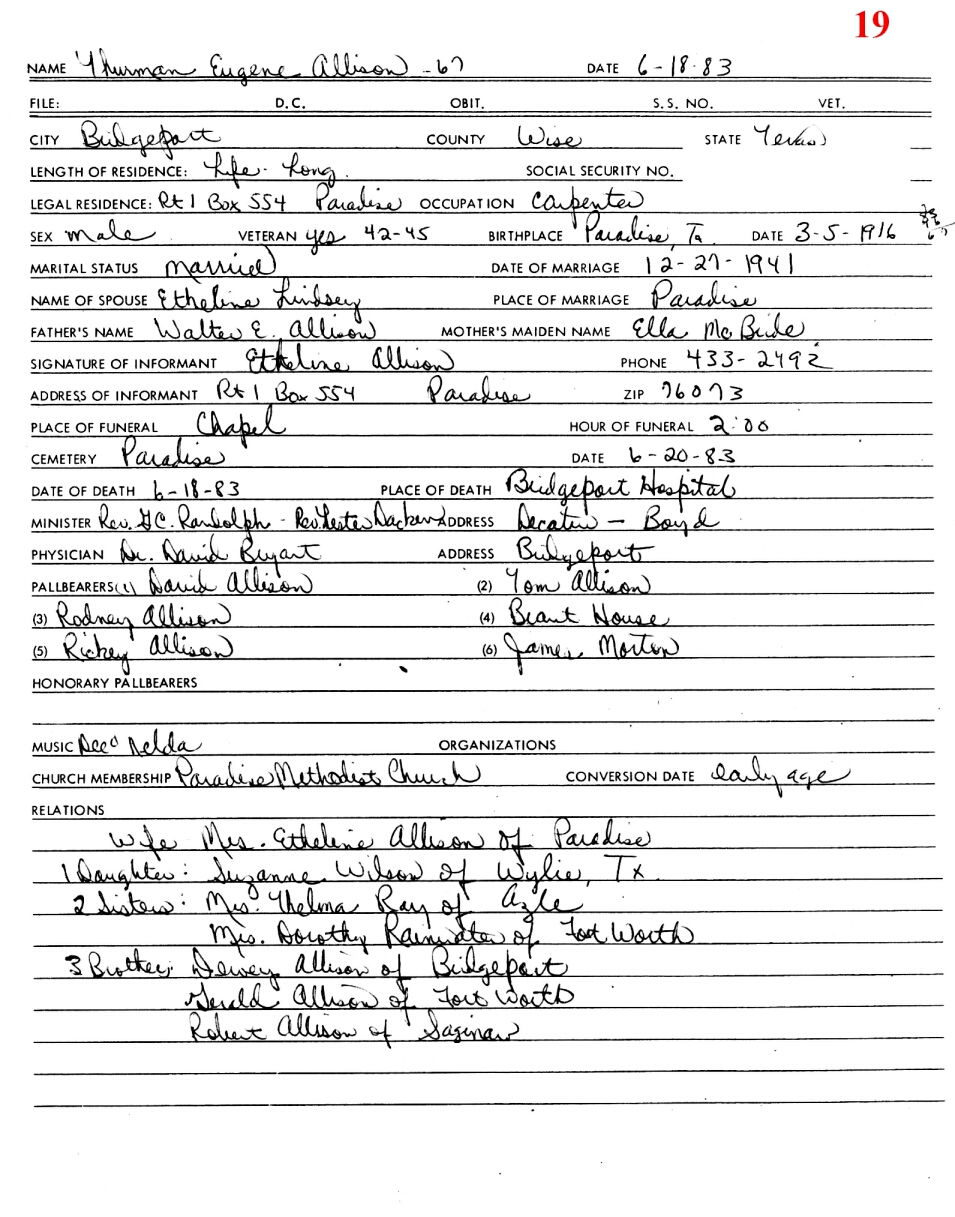 19
NAME Thurman Eugene Allison - 67 DATE 6-18-83
FILE: D.C. OBIT. S.S. NO. VET.
CITY Bridgeport COUNTY Wise STATE Texas
LENGTH OF RESIDENCE: Life-Long SOCIAL SECURITY NO.
LEGAL RESIDENCE: Rt 1 Box 554 Paradise OCCUPATION Carpenter
SEX Male VETERAN yes 42-45 BIRTHPLACE Paradise, Tx DATE 3-5-1916
MARITAL STATUS Married DATE OF MARRIAGE 12-27-1941
NAME OF SPOUSE Etheline Lindsey PLACE OF MARRIAGE Paradise
FATHER'S NAME Walter E. Allison MOTHER'S MAIDEN NAME Ella McBride
SIGNATURE OF INFORMANT Etheline Allison PHONE 433-2492
ADDRESS OF INFORMANT Rt 1 Box 554 Paradise ZIP 76073
PLACE OF FUNERAL Chapel HOUR OF FUNERAL 2:00
CEMETERY Paradise DATE 6-20-83
DATE OF DEATH 6-18-83 PLACE OF DEATH Bridgeport Hospital
MINISTER Rev. Randolph - Rev. Lester ADDRESS Decatur - Boyd
PHYSICIAN Dr. David Bryant ADDRESS Bridgeport
PALLBEARERS (1) David Allison (2) Tom Allison
(3) Rodney Allison (4) Brant House
(5) Rickey Allison (6) James Morton
HONORARY PALLBEARERS
MUSIC Nelda ORGANIZATIONS
CHURCH MEMBERSHIP Paradise Methodist Church CONVERSION DATE early age
RELATIONS
Wife Mrs. Etheline Allison of Paradise
1 Daughter: Suzanne Wilson of Wylie, Tx.
2 Sisters: Mrs. Thelma Ray of Azle
Mrs. Dorothy Rainwater of Fort Worth
3 Brother: Dewey Allison of Bridgeport
Gerald Allison of Fort Worth
Robert Allison of Saginaw